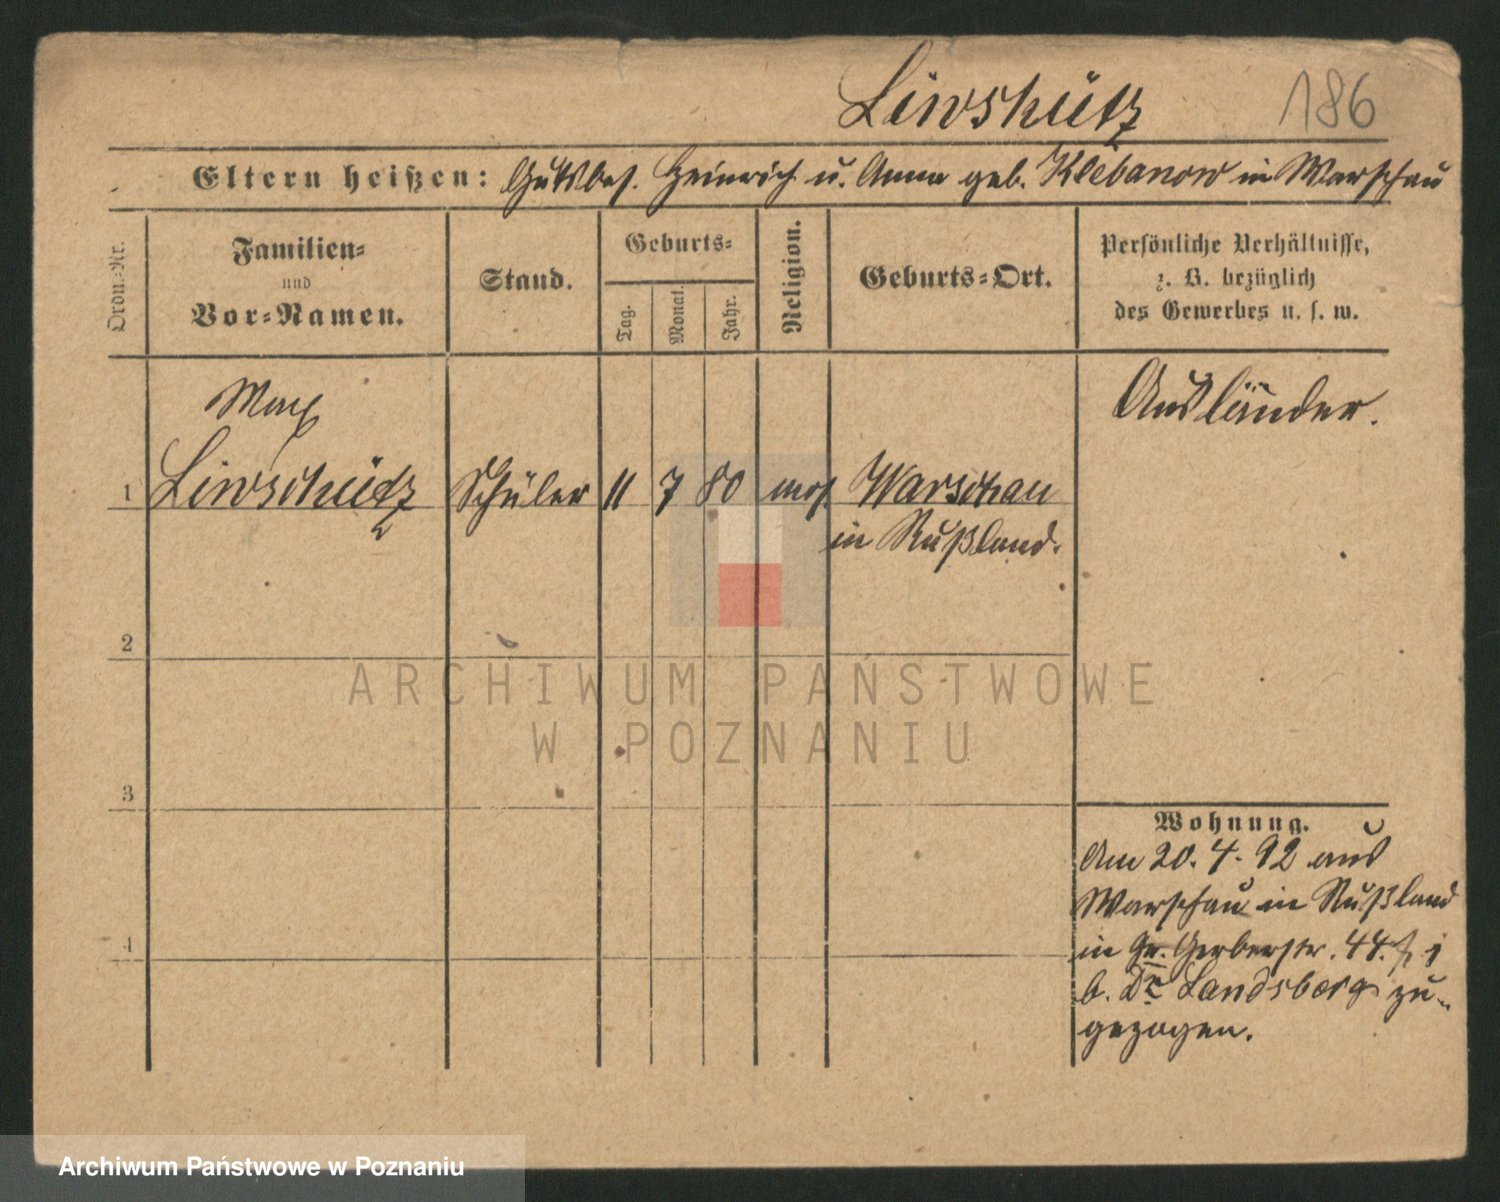 Liwshütz 186
Eltern heißen: Gutsbes. Heinrich u. Anna geb. Klebanow in Warschau
Ordn.-Nr.
Familien-
und
Vor-Namen.
Stand.
Geburts-
Tag.
Monat.
Jahr.
Religion.
Geburts-Ort.
Persönliche Verhältnisse,
z. B. bezüglich
des Gewerbes u. s. w.
Max
Ausländer.
1 Liwschütz Schüler 11 7 80 mos. Warschau
in Rußland.
2
3
4
Wohnung.
Am 20. 4. 92 aus
Warschau in Rußland
in Gr. Gerberstr. 44.
b. Dr Landsberg zu-
gezogen.
ARCHIWUM PAŃSTWOWE
W POZNANIU
Archiwum Państwowe w Poznaniu